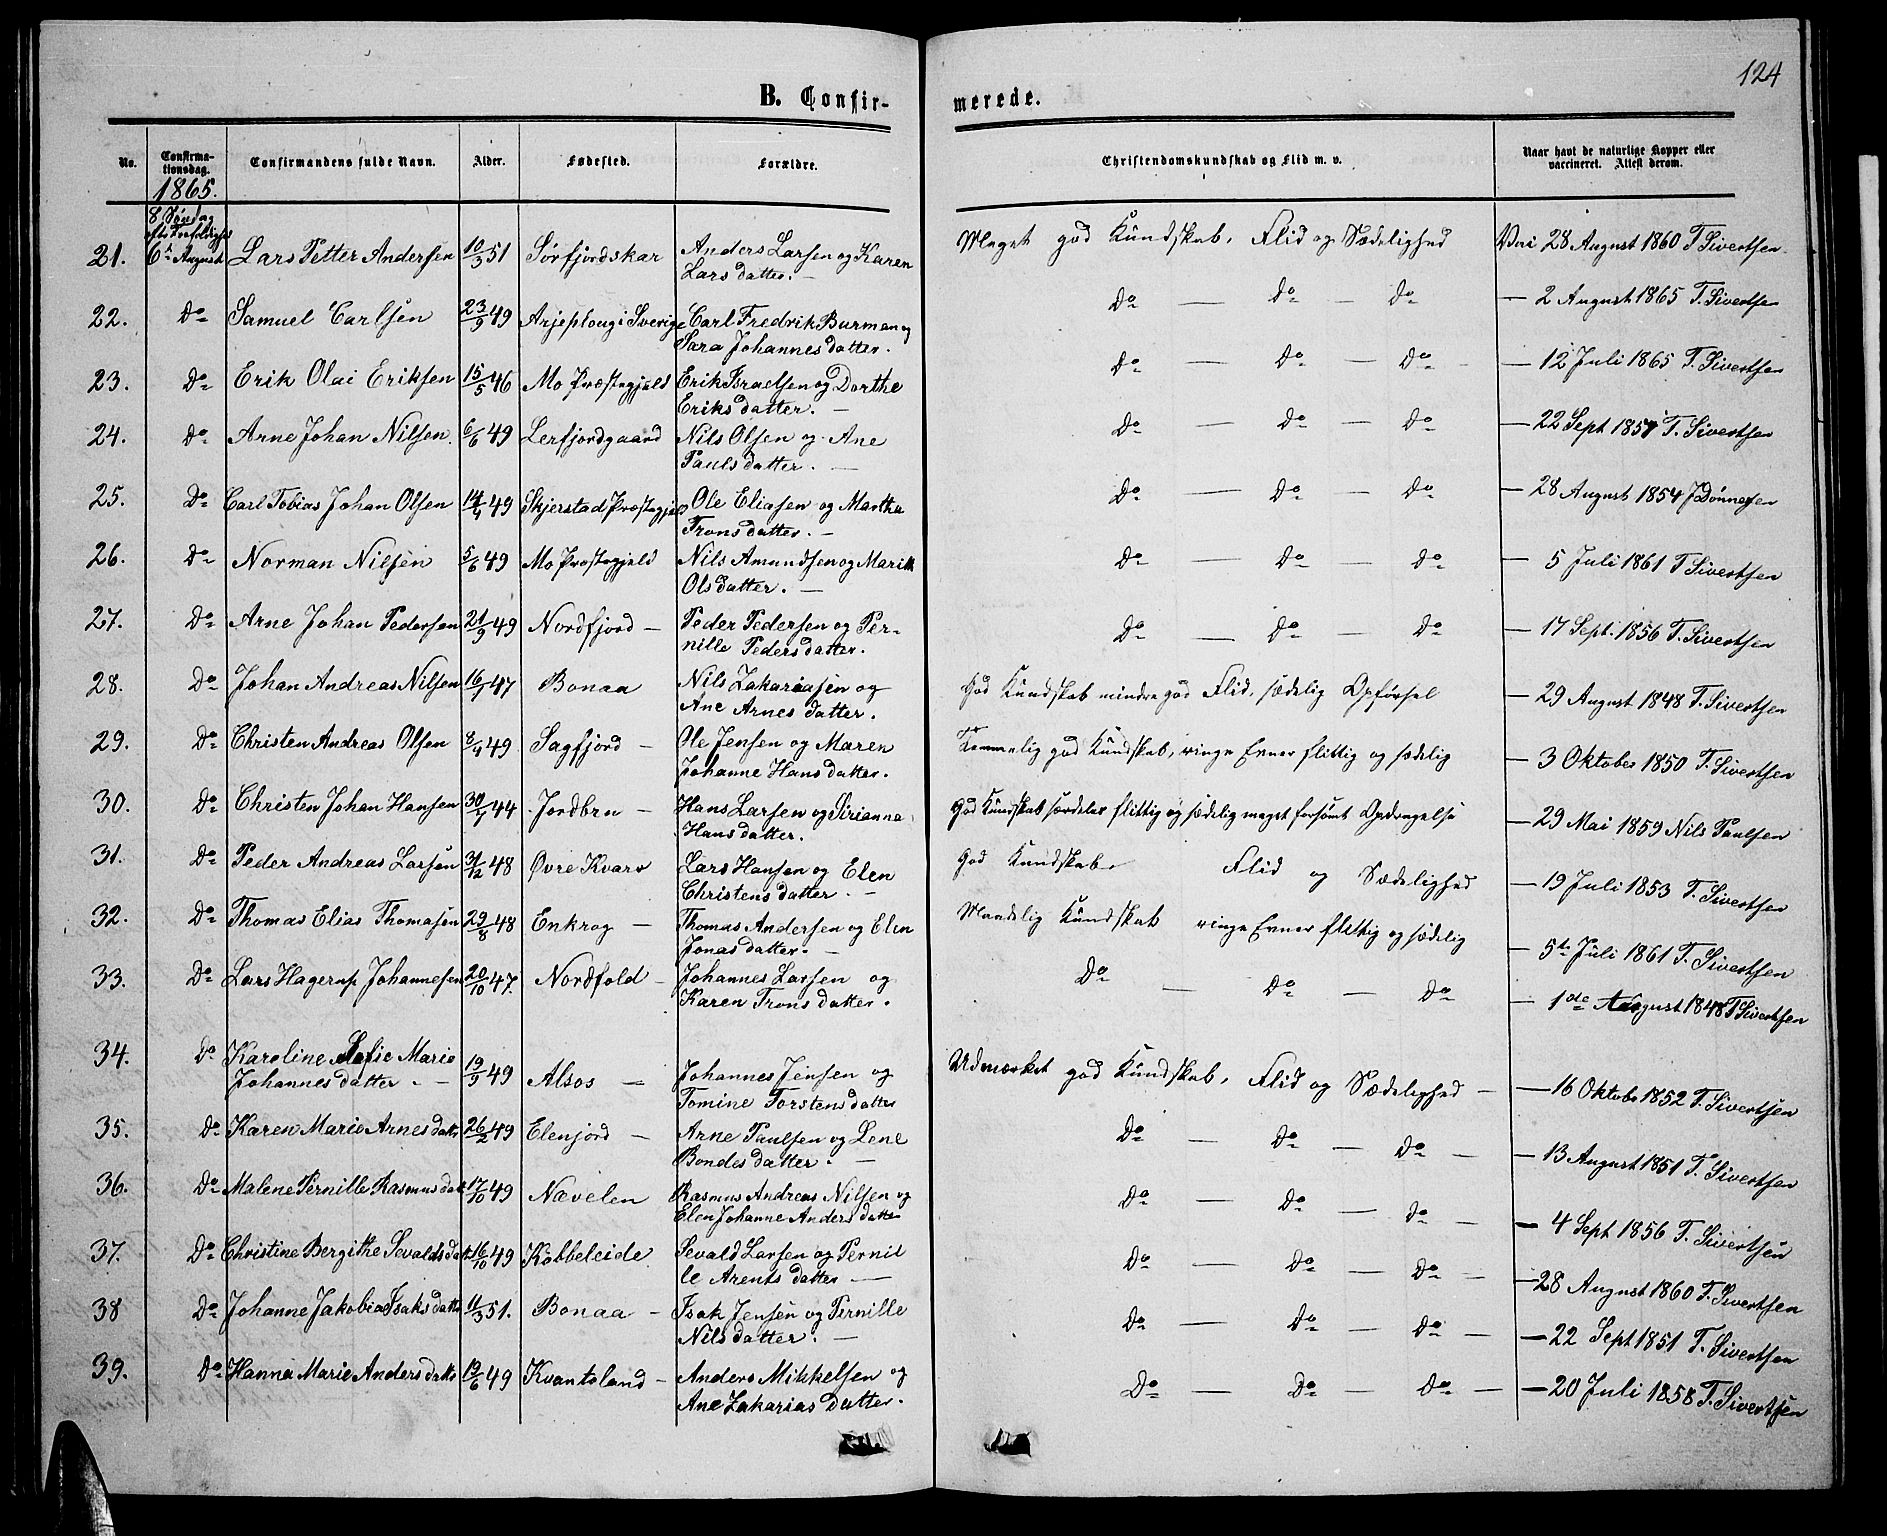 124
B. Confir-
merede.
No.
Confirma-
tionsdag.
Confirmandens fulde Navn.
Alder.
Fødested.
Forældre.
Christendomskundskab og Flid m. v.
Naar havt de naturlige Kopper eller
vaccineret. Attest derom.
1865.
8 Søndag
6te August
21. Lars Petter Andersen 10/3 51 Sørfjordskar Anders Larsen og Karen
Larsdatter. — Meget god Kundskab, Flid og Sædelighed 28 August 1860 T. Sivertsen
22. Do Samuel Carlsen 23/9 49 Arjeploug i Sverige Carl Fredrik Burman og
Sara Johannesdatter. Do — Do — Do — 2 August 1865 T. Sivertsen
23. Do Erik Olai Eriksen 15/5 46 Mo Præstegjeld Erik Israelsen og Dorthe
Eriksdatter. — Do — Do — Do — 12 Juli 1865 T. Sivertsen
24. Do Arne Johan Nilsen. 6/6 49 Lerfjordgaard Nils Olsen og Ane
Paulsdatter. — Do — Do — Do — 22 Sept 1857 T. Sivertsen
25. Do Carl Tobias Johan Olsen 49 Skjerstad Præstegjeld Ole Eliasen og Martha
Tronsdatter. — Do — Do — Do — 28 August 1854 J Dønnesen
26. Do Norman Nilsen 5/6 49 Mo Præstegjeld Nils Amundsen og Marith
Olsdatter. — Do — Do — Do — 5 Juli 1861 T Sivertsen
27. Do Arne Johan Pedersen 21/9 49 Nordfjord — Peder Pedersen og Per-
nille Pedersdatter. Do — Do — Do — 17 Sept. 1856 T. Sivertsen
28. Do Johan Andreas Nilsen 16/1 47 Bonaa Nils Zakariasen og
Ane Arnesdatter. God Kundskab mindre god Flid, sædelig Opførsel — 29 August 1848 T. Sivertsen
29. Do Christen Andreas Olsen 8/4 49 Sagfjord — Ole Jensen og Maren
Johanne Hansdatter. Temmelig god Kundskab, ringe Evner flittig og sædelig — 3 Oktober 1850 T. Sivertsen
30. Do Christen Johan Hansen 44 Jordbru — Hans Larsen og Sirianna
Hansdatter. God Kundskab særdeles flittig og sædelig meget forsømt Opdragelse — 29 Mai 1859 Nils Paulsen
31. Do Peder Andreas Larsen 31/12 48 Øvre Kvarv Lars Hansen og Elen
Christensdatter. — God Kundskab Flid og Sædelighed — 19 Juli 1853 T. Sivertsen
32. Do Thomas Elias Thomasen 29/8 48 Enkrog — Thomas Andersen og Elen
Jonasdatter. — Maadelig Kundskab ringe Evner flittig og sædelig — 5te Juli 1861 T. Sivertsen
33. Do Lars Hagerup Johannesen 20/10 47. Nordfold — Johannes Larsen og
Karen Tronsdatter. Do — Do — Do — 1ste August 1848 T Sivertsen
34. Do Karoline Sofie Marie
Johannesdatter. — 19/9 49 Alsos — Johannes Jensen og
Tomine Torstensdatter Udmærket god Kundskab, Flid og Sædelighed — 16 Oktober 1852 T. Sivertsen
35. Do Karen Marie Arnesdatter 26/2 49 Elenjord — Arne Paulsen og Lene
Bondesdatter. — Do — Do — Do — 13 August 1851 T. Sivertsen
36. Do Malene Pernille Rasmusdatt 17/10 49 Nævelen Rasmus Andreas Nilsen og
Elen Johanne Andersdatter Do — Do — Do — 4 Sept 1856 T. Sivertsen
37. Do Christine Bergithe Sevaldsdatt 16/10 49 Kobbeleide. Sevald Larsen og Pernil
le Arentsdatter — Do — Do — Do — 28 August 1860 T. Sivertsen
38 Do Johanne Jakobia Isaksdatter 11/3 51. Bonaa — Isak Jensen og Pernille
Nilsdatter. — Do — Do — Do — 22 Sept 1851 T. Sivertsen
39. Do Hanna Marie Andersdatter 19/6 49 Kvantoland — Anders Mikkelsen og
Ane Zakariasdatter. Do — Do — Do — 20 Juli 1858 T. Sivertsen